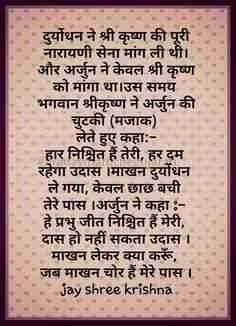 दुर्योधन ने श्री कृष्ण की पूरी
नारायणी सेना मांग ली थी।
और अर्जुन ने केवल श्री कृष्ण
को मांगा था।उस समय
भगवान श्रीकृष्ण ने अर्जुन की
चुटकी (मजाक)
लेते हुए कहा:-
हार निश्चित हैं तेरी, हर दम
रहेगा उदास ।माखन दुर्योधन
ले गया, केवल छाछ बची
तेरे पास ।अर्जुन ने कहा :-
हे प्रभु जीत निश्चित हैं मेरी,
दास हो नहीं सकता उदास ।
माखन लेकर क्या करूँ,
जब माखन चोर हैं मेरे पास ।
jay shree krishna